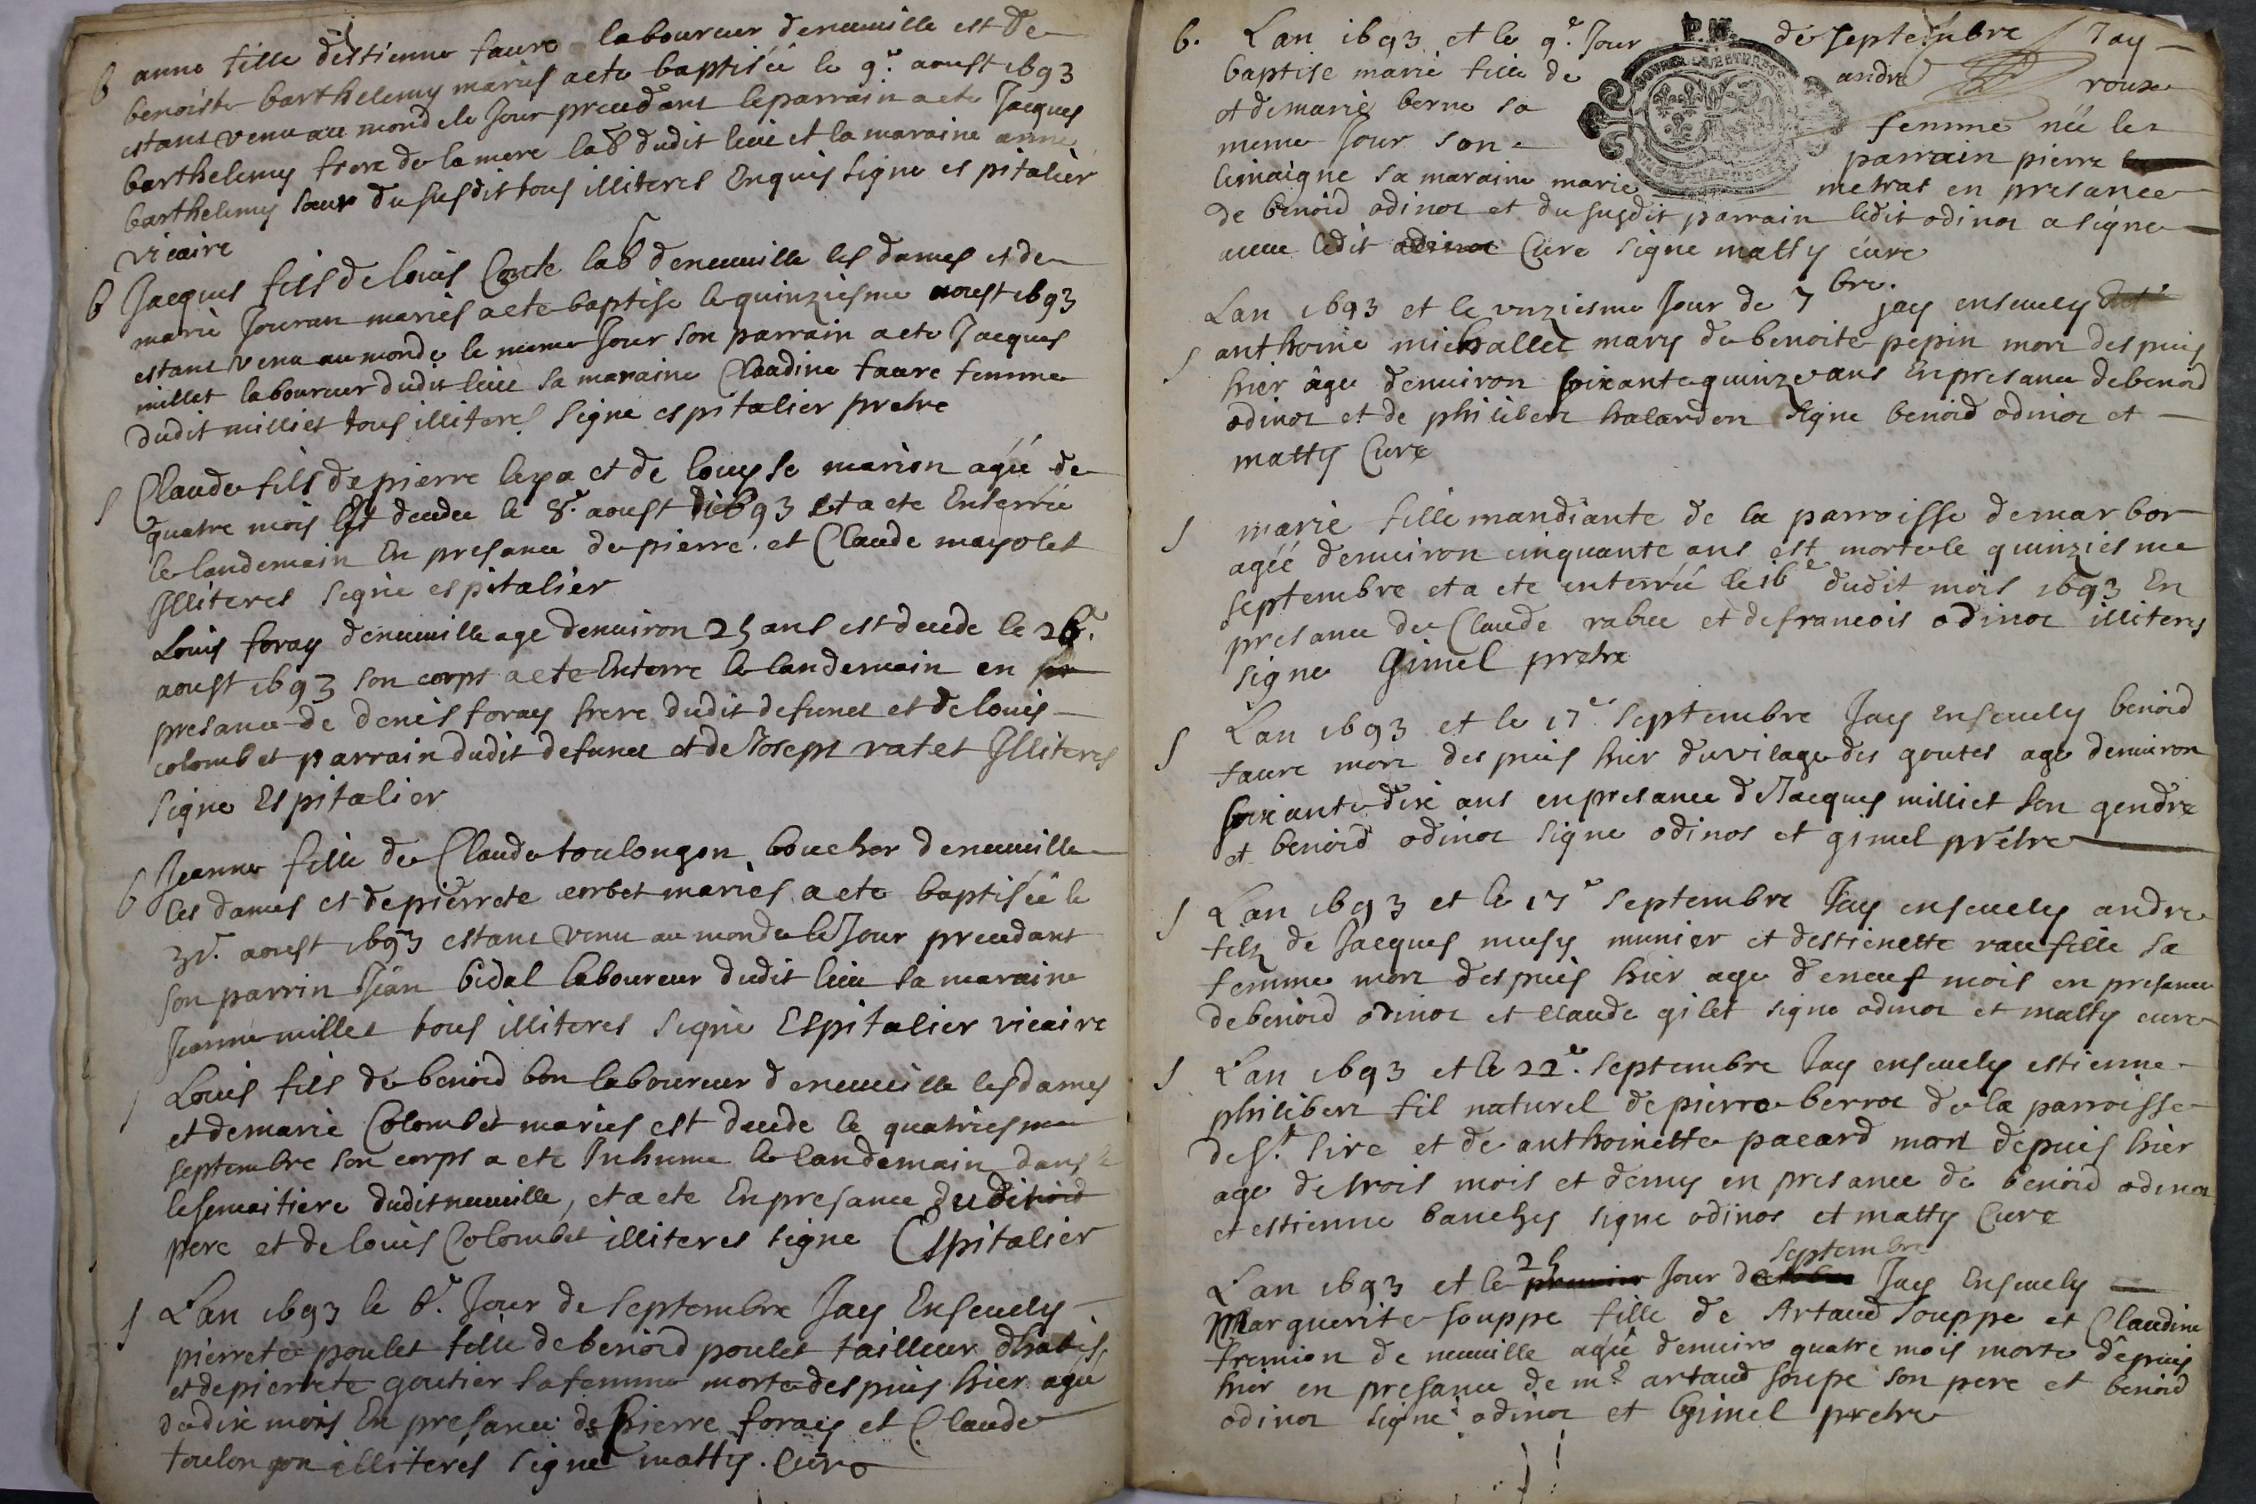 B anne fille d'estienne faure laboureur de neuville est De
benoiste barthelemy mariés a ete baptisée le 9.e aoust 1693
estant venu au monde le Jour precedant le parrain a ete Jacques
barthelemy frere de la mere lab dudit lieu et la maraine anne
barthelemy soeur du susdit tous illiteres Enquis signe espitalier
vicaire
B Jacques fils de louis Conte lab de neuville les dames et de
marie Jouran mariés a ete baptise le quinziesme aoust 1693
estant venu au monde le meme Jour son parrain a ete Jacques
millet laboureur dudit lieu sa maraine Claudine faure femme
dudit milliet tous illiteres signe espitalier pretre
S Claude fils de pierre lepa et de louyse marion agée de
quatre mois Est decedee le 8.e aoust 1693 et a ete Enterrée
le landemain En presance de pierre et Claude mayolet
Illiteres signe espitalier
Louis foray de neuville age denuiron 25 ans est decede le 26.e
aoust 1693 son corps a ete Enterre le landemain en
presance de denis foray frere dudit defunct et de louis
colombet parrain dudit defunct et de Joseph ratet Illiteres
signe Espitalier
b Jeanne fille de Claude toulongon boucher de neuville
les dames et de pierrete corbet mariés a ete baptisée le
31.e aoust 1693 estant venu au monde le Jour precedant
son parrin Jean bidal laboureur dudit lieu sa maraine
Jeanne millet tous illiteres signe Espitalier vicaire
S Louis fils de benoid bon laboureur de neuville les dames
et de marie Colombet mariés est decede le quatriesme
septembre son corps a ete Inhume le landemain dans
le semaitiere dudit neuville, et a ete En presance dudit
pere et de louis Colombet illiteres signe Espitalier
S L'an 1693 le 6.e Jour de septembre Jay Enseuely
pierrete poulet fille de benoid poulet tailleur dhabis
et de pierrete goutier sa femme morte despuis hier agée
de dix mois En presance de pierre forais et Claude
toulongon illiterés signé matty. Curé
b. L'an 1693 et le 9.e Jour de septembre Jay
baptise marie fille de andre roux
et de marie berne sa femme née le
meme Jour son parrain pierre
limaigne sa maraine marie metrat en presance
de benoid odinot et du susdit parrain ledit odinot a signe
auec ledit Cure signe matty cure
Lan 1693 et le vnziesme Jour de 7bre. jay enseuely
S anthoine michallet mary de benoite pepin mort despuis
hier âge denuiron soixante quinze ans En presance de benoid
odinot et de philibert halardon signe benoid odinot et
matty Cure
S marie fille mandiante de la parroisse de marbor
agée denuiron cinquante ans est morte le quinziesme
septembre et a ete enterrée le 16e dudit mois 1693 En
presance de Claude rabue et de francois odinot illiteres
signe Gimel pretre
S L'an 1693 et le 17.e septembre Jay enseuely benoid
faure mort despuis hier du vilage des goutes age denuiron
soixante dix ans en presance de Jacques milliet son gendre
et benoid odinot signe odinos et gimel prêtre
S L'an 1693 et le 17e septembre Jay enseuely andre
filz de Jacques musy munier et destienette raufille sa
femme mort despuis hier age de neuf mois en presance
de benoid odinot et claude gilet signe odinot et matty cure
S L'an 1693 et le 22.e septembre Jay enseuely estienne
philibert fil naturel de pierre berrot de la parroisse
de St. sire et de anthoinette pacard mort depuis hier
age de trois mois et demy en presance de benoid odinot
et estienne banchy signe odinos et matty Cure
L'an 1693 et le 25 Jour de septembre Jay Enseuely
Marguerite souppe fille de Artaud souppe et Claudine
fremion de neuville agée denuiro quatre mois morte dépuis
hier en presance de me artaud soupe son pere et benoid
odinot signé odinot et Gimel pretre